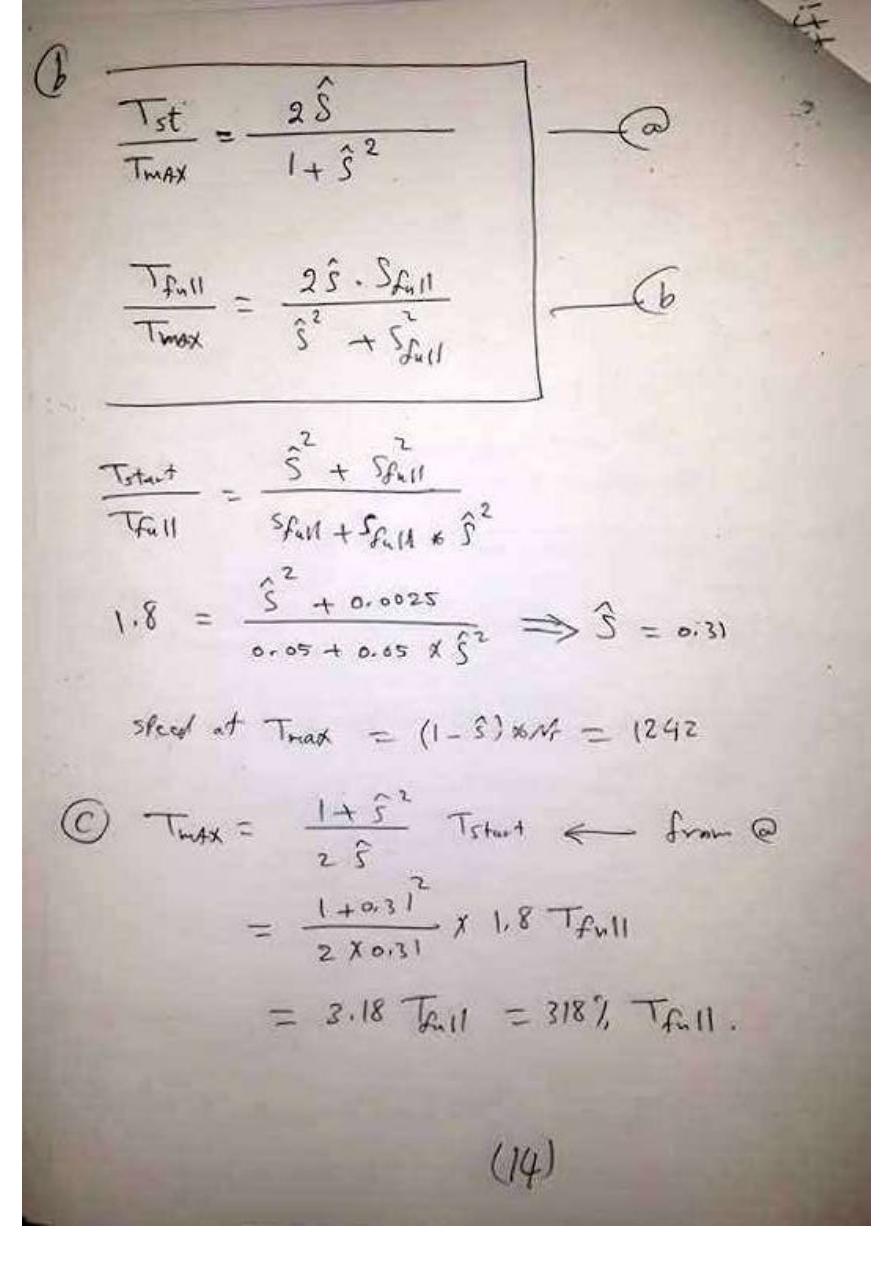 itt
(b)
Tst / TMAX = 2ŝ / (1 + ŝ²) — (a)
Tfull / Tmax = 2ŝ . Sfull / (ŝ² + S²full) — (b)
Tstart / Tfull = (ŝ² + S²full) / (Sfull + Sfull * ŝ²)
1.8 = (ŝ² + 0.0025) / (0.05 + 0.05 × ŝ²) ⟹ ŝ = 0.31
speed at Tmax = (1 - ŝ) * Nr = 1242
(c) TMAX = (1 + ŝ²) / (2 ŝ) Tstart ← from (a)
= (1 + 0.31²) / (2 × 0.31) × 1.8 Tfull
= 3.18 Tfull = 318% Tfull.
(14)